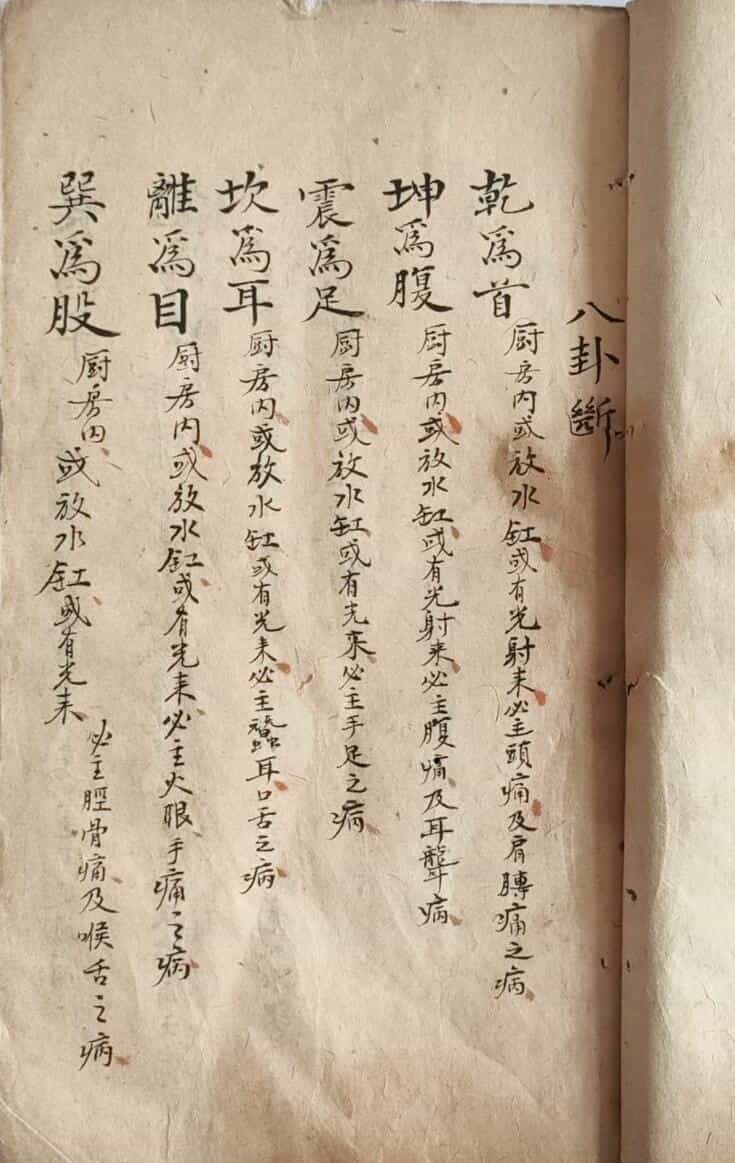 八卦斷
乾為首 厨房内或放水缸或有光射来必主頭痛及肩膊痛之病
坤為腹 厨房内或放水缸或有光射来必主腹痛及耳聾病
震為足 厨房内或放水缸或有光来必主手足之病
坎為耳 厨房内或放水缸或有光来必主聾耳口舌之病
離為目 厨房内或放水缸或有光来必主火眼手痛之病
巽為股 厨房内或放水缸或有光来必主脛骨痛及喉舌之病